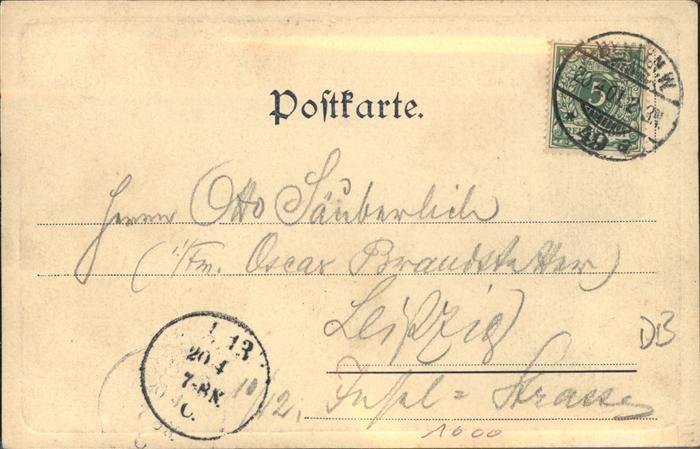 Postkarte.
5
20.
40
Herrn Otto Säuberlich
(i/Fm. Oscar Brandstetter)
Leipzig
DB
10/12. Insel=Strasse
1000
L. 13
20 4
7-8N.
C.